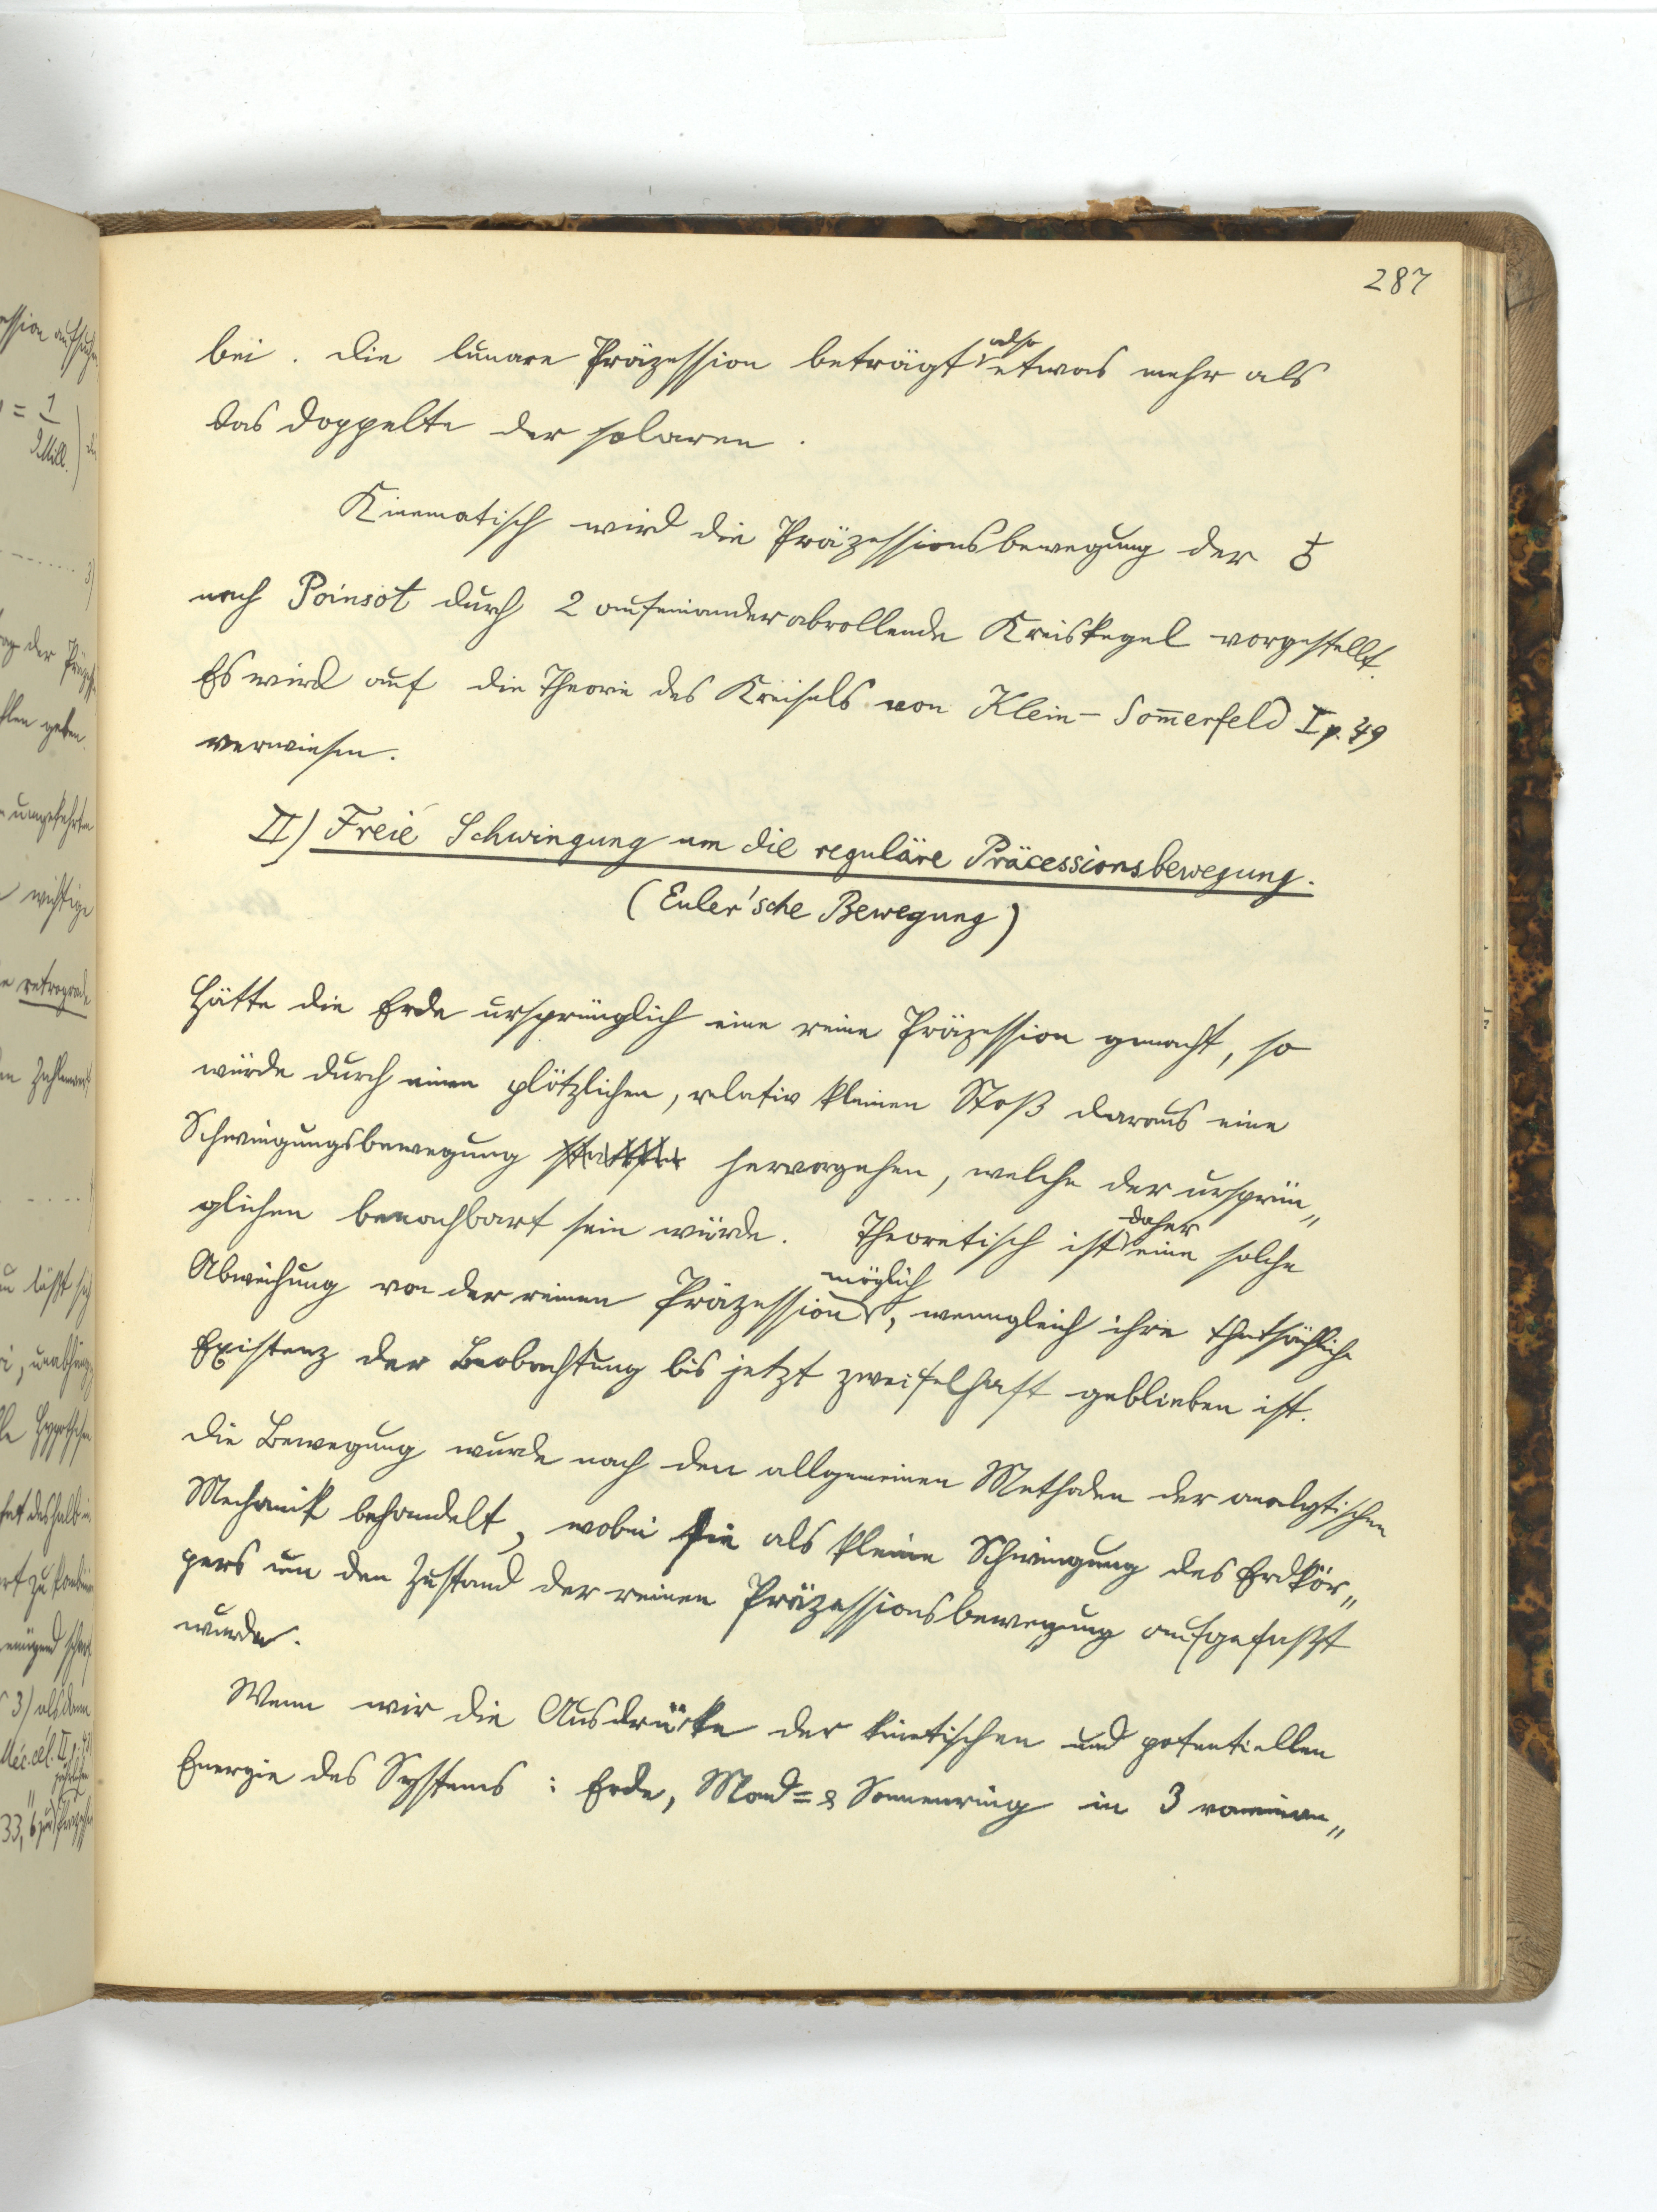 287
bei. Die lunare Präzession beträgt also etwas mehr als
das Doppelte der solaren.
Kinematisch wird die Präzessionsbewegung der ♁
nach Poinsot durch 2 aufeinanderabrollende Kreiskegel vorgestellt.
Es wird auf die Theorie des Kreisels von Klein-Som̄erfeld I p. 49
verwiesen.
II) Freie Schwingung um die reguläre Präcessionsbewegung.
(Euler'sche Bewegung)
Hätte die Erde ursprünglich eine reine Präzession gemacht, so
würde durch einen plötzlichen, relativ kleinen Stoß daraus eine
Schwingungsbewegung hervorgehen, welche der ursprün„
glichen benachbart sein würde. Theoretisch ist daher eine solche
Abweichung von der reinen Präzession möglich, wenngleich ihre thatsächliche
Existenz der Beobachtung bis jetzt zweifelhaft geblieben ist.
Die Bewegung wurde nach den allgemeinen Methoden der analytischen
Mechanik behandelt, wobei sie als kleine Schwingung des Erdkör„
pers um den Zustand der reinen Präzessionsbewegung aufgefaßt
wurde.
Wenn wir die Ausdrücke der kinetischen und potentiellen
Energie des Systems: Erde, Mond= & Sonnenring in 3 voneinan„